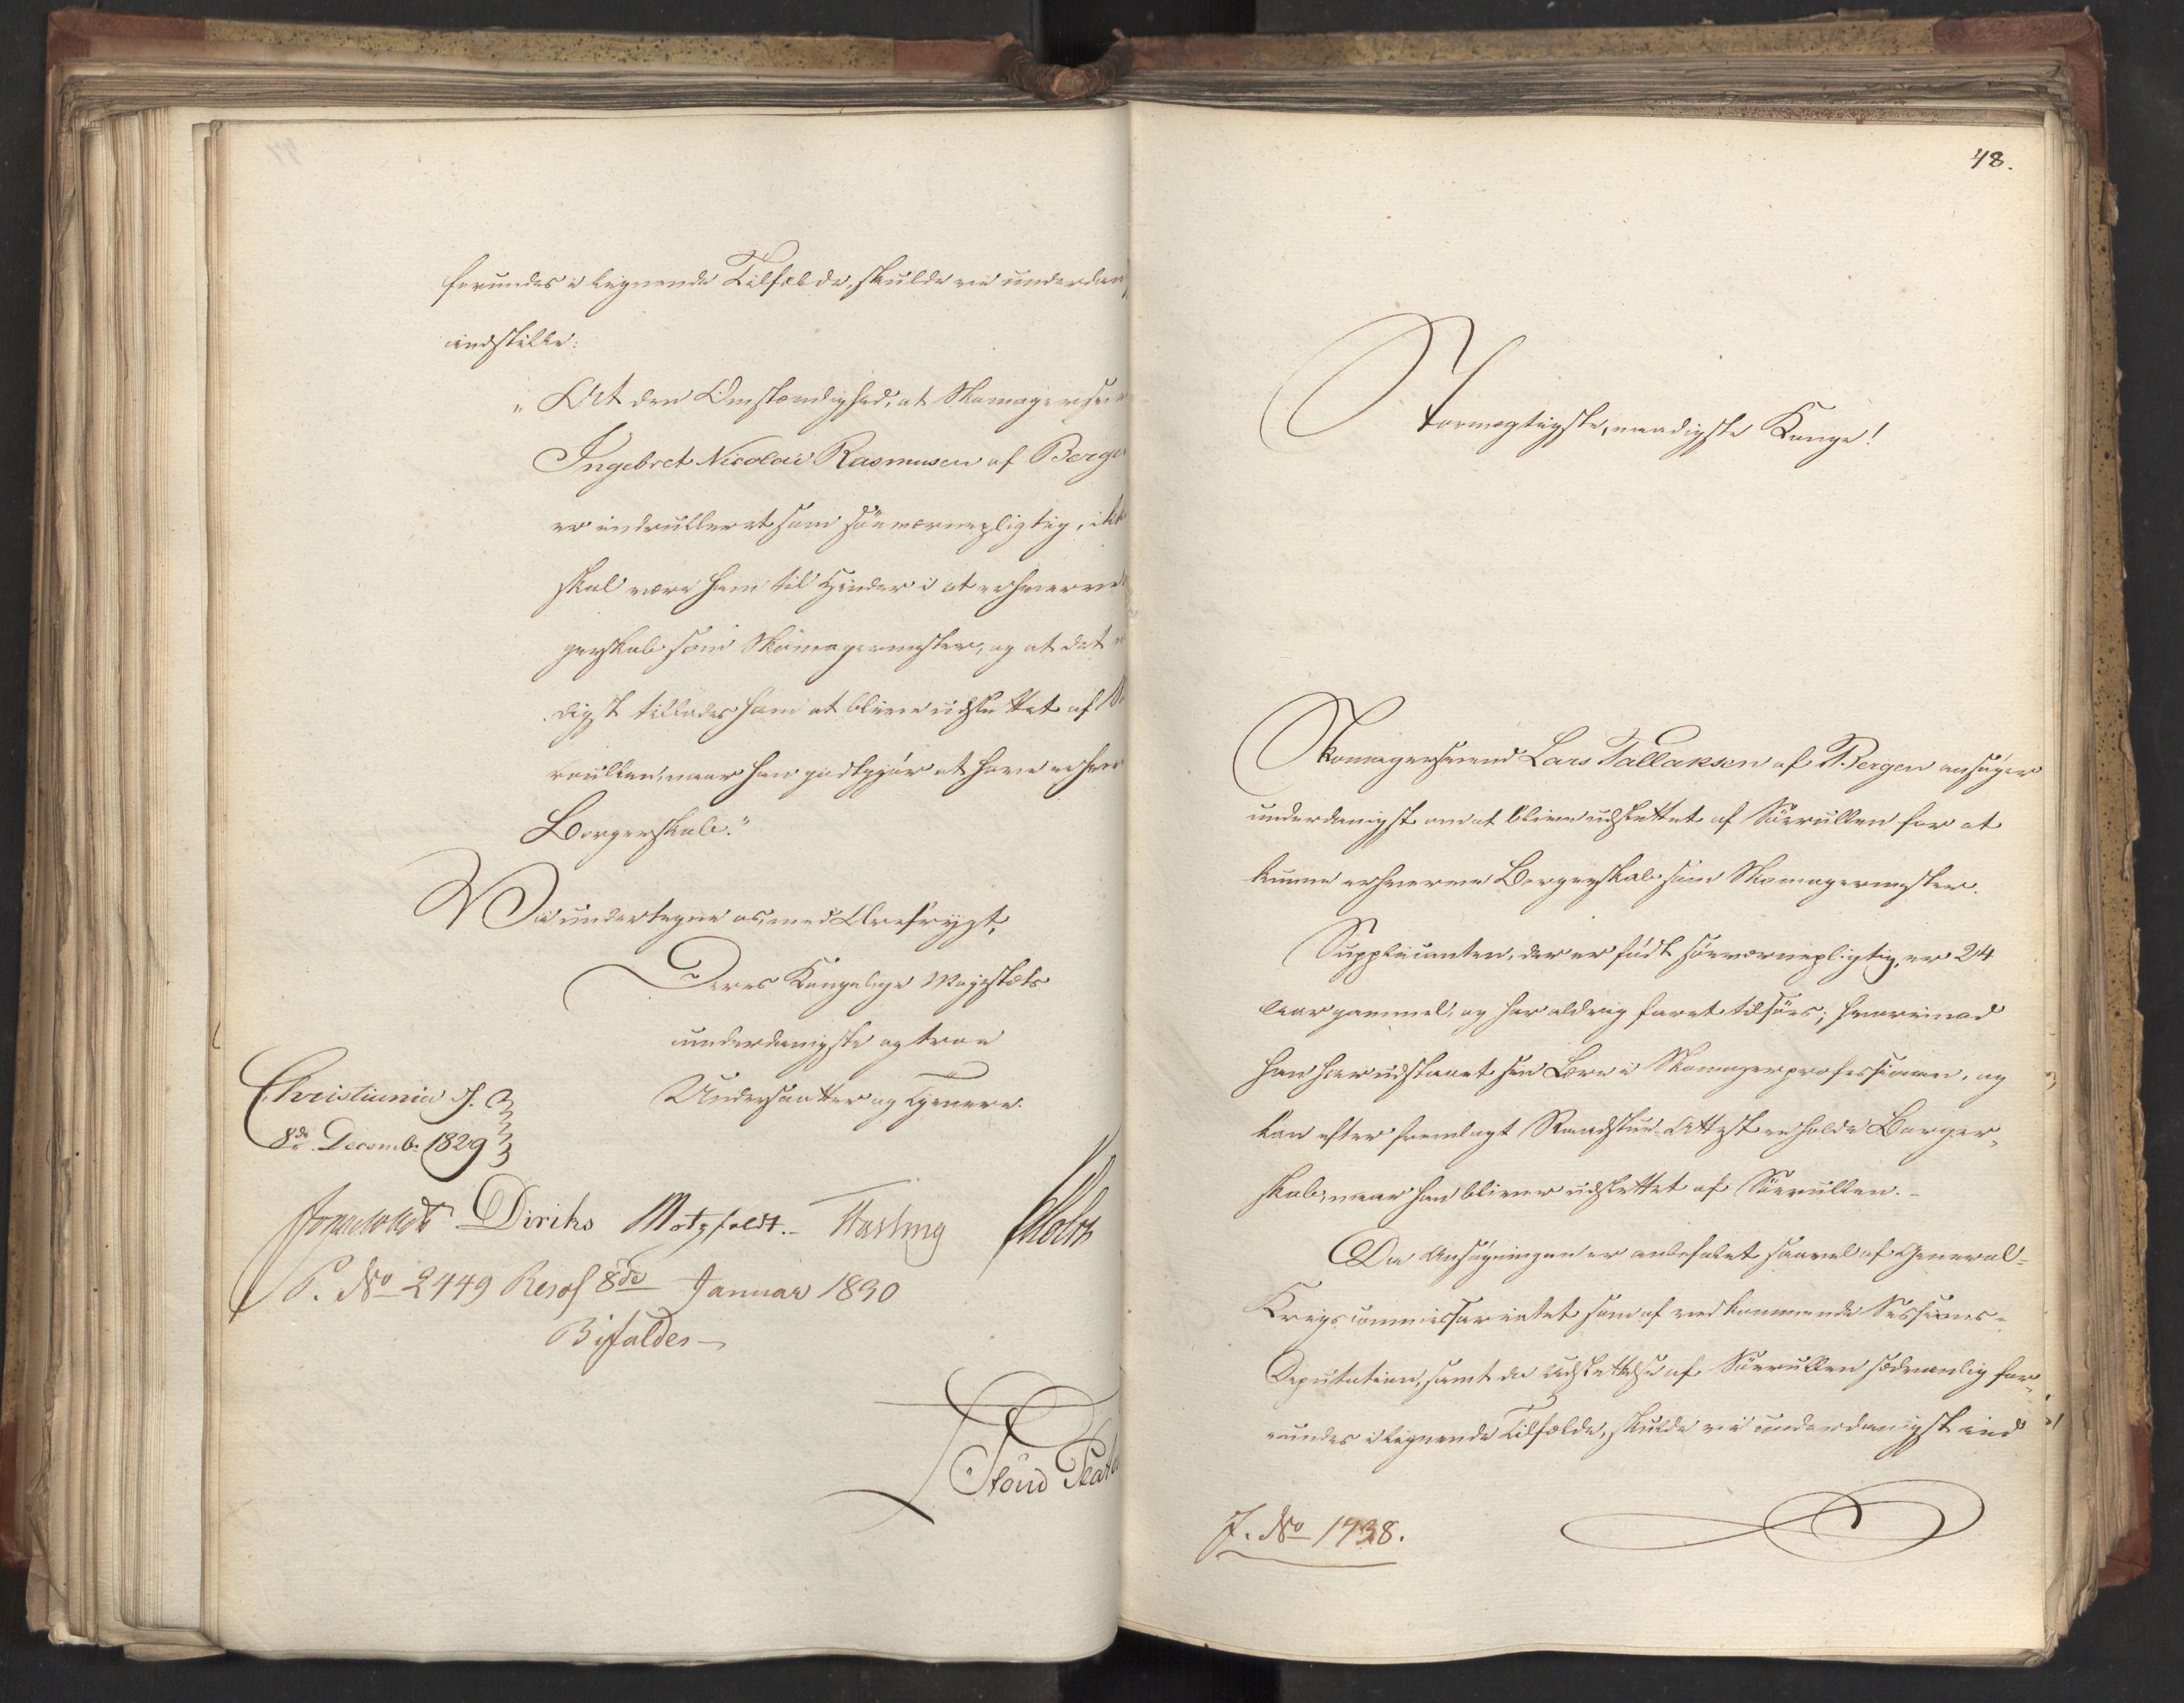 forundes i lignende Tilfælde, skulde vi underdan
indstille:
"At den Omstændighed, at Skomagersven
Ingebret Nicolai Rasmusen af Berge
er indrulleret som søeværnepligtig, ikk
skal være ham til Hinder i at erhverve
gerskab som Skomagermester, og at det
digst tillades ham at blive udslettet af
rullen, naar han godtgjør at have erhver
Borgerskab."
Vi undertegne os med Ærefrygt,
Deres Kongelige Majestæts
underdanigste og troe
Undersaatter og Tjenere.
Christiania d.
8de Decemb. 1829
Diriks Motzfeldt. Fasting Holst
P. No 2449 Resol 8de Januar 1830
Bifaldes
48.
Stormægtigste, naadigste Konge!
Skomagersvend Lars Tallaksen af Bergen ansøger
underdanigst om at blive udslettet af Søerullen for at
kunne erhverve Borgerskab som Skomagermester.
Supplicanten, der er født søeværnepligtig, er 24
Aar gammel, og har aldrig faret tilsøes; hvorimod
han har udstaaet sin Lære i Skomagerprofessionen, og
kan efter fremlagt Raadstue-Attest erholde Borger-
skab, naar han bliver udslettet af Søerullen.-
Da Ansøgningen er anbefalet saavel af General-
Krigscommissariatet som af vedkommende Sessions-
Deputation, samt da Udslettelse af Søerullen sædvanlig for-
undes i lignende Tilfælde, skulde vi underdanigst ind
J. No 1738.